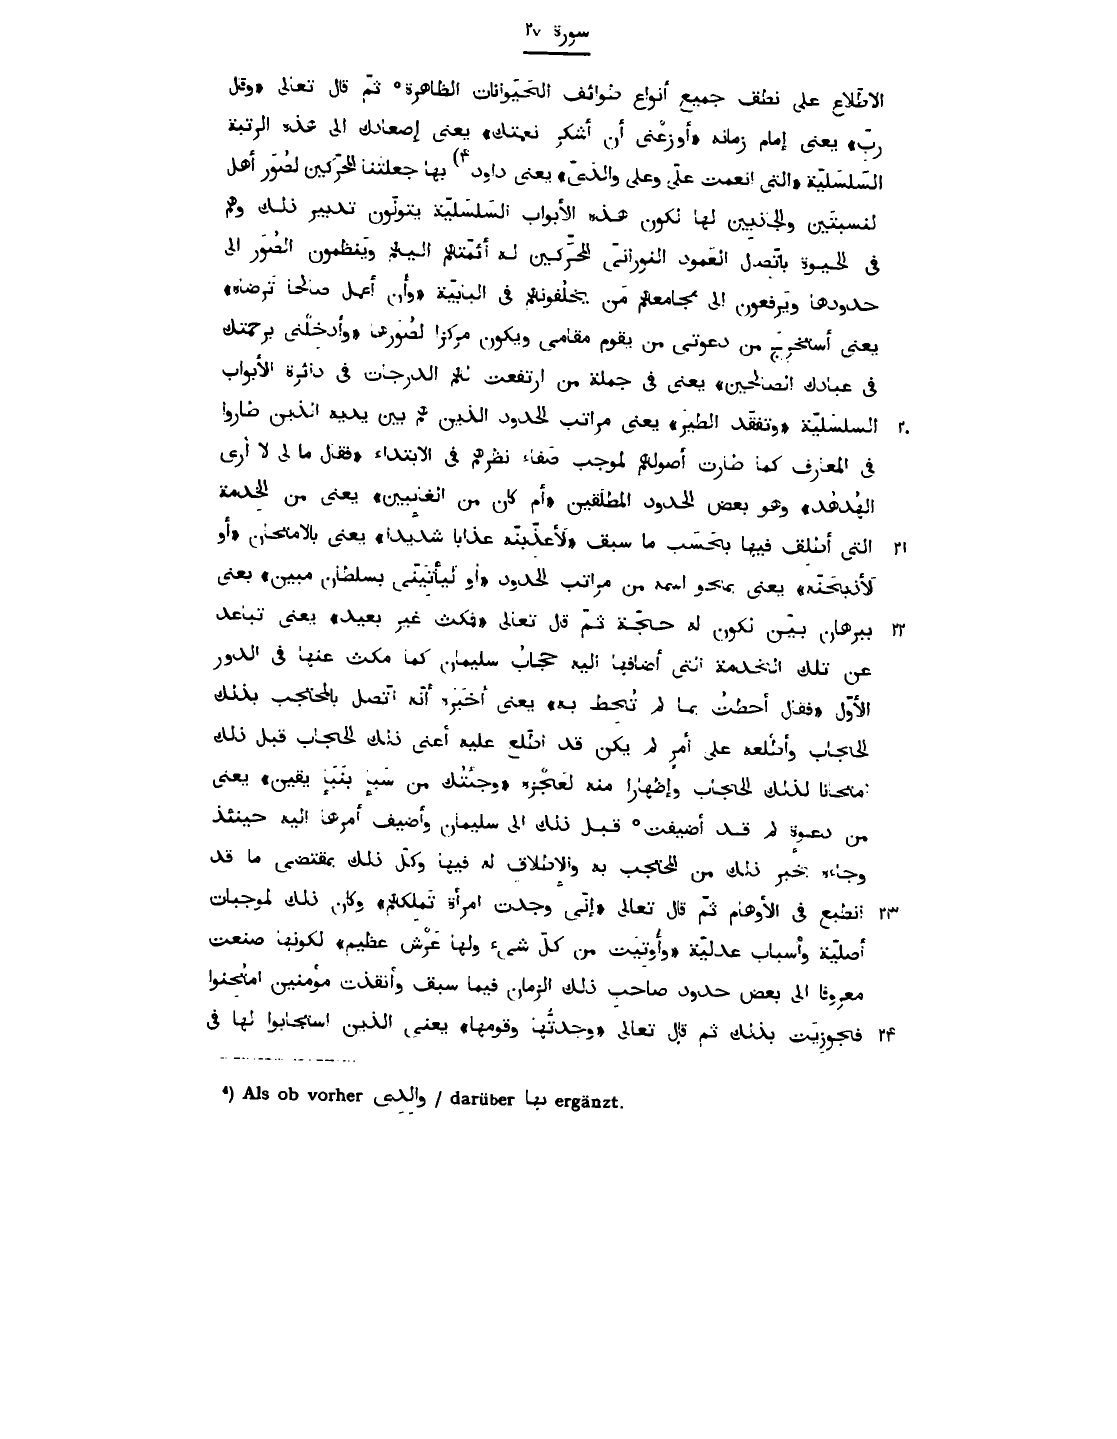 سورة ٢٧
الاطّلاع على نطق جميع أنواع طوائف الحَيَوانات الظاهرة° ثمّ قال تعالى «وقل
ربّ» يعنى إمام زمانه «أوزعْنى أن أشكر نعمتك» يعنى إصعادك الى هذه الرتبة
السّلسَليّة «التى انعمت علىّ وعلى والدَىّ» يعنى داود⁴) بها جعلتَنا المحرّكين لصُوَر أهل
لنسبتَين والجاذبين لها لكون هذه الأبواب السَلسَليّة يتولّون تدبير ذلك وهم
فى الحيوة باتّصل العَمود النورانىّ المحرّكين له أئمّتهم اليهم ويَنظمون الصُوَر الى
حدودها ويَرفعون الى مجامعهم مَن يخلُفونهم فى البابيّة «وأن أعمل صالحا تَرضاه»
يعنى أستخرِج من دعوتى من يقوم مقامى ويكون مركزا لصُوَرها «وأدخلْنى برحمتك
فى عبادك الصالحين» يعنى فى جملة من ارتفعت لهم الدرجات فى دائرة الأبواب
٢٠ السلسَليّة «وتفقّد الطَير» يعنى مراتب الحدود الذين هم بين يديه الذين صاروا
فى المعارف كما صارت أصولهم لموجب صَفاء نظرهم فى الابتداء «فقال ما لى لا أرى
الهُدهُد» وهو بعض الحدود المطلَقين «أم كان من الغائبين» يعنى من الخدمة
٢١ التى أُطلِق فيها بحَسَب ما سبق «لَأعذّبنّه عذابا شديدا» يعنى بالامتحان «أو
لَأذبحَنّه» يعنى بمَحْو اسمه من مراتب الحدود «أو لَيأتيَنّى بسلطان مبين» يعنى
٢٢ ببرهان بيّن تكون له حجّة ثمّ قل تعالى «فمكث غير بعيد» يعنى تباعد
عن تلك الخدمة التى أضافها اليه حجابُ سليمان كما مكث عنها فى الدور
الأوّل «فقال أحطتُ بما لم تُحط به» يعنى أخبَرَه أنّه اتّصل بالمحتجب بذلك
الحجاب وأطلعه على أمرٍ لم يكن قد اطّلع عليه أعنى ذلك الحجاب قبل ذلك
امتحانا لذلك الحجاب وإظهارا منه لعَجْزه «وجئتُك من سَبَإٍ بنَبَإٍ يقين» يعنى
من دعوةٍ لم قد أضيفت° قبل ذلك الى سليمان وأضيف أمرها اليه حينئذ
وجاءه بخَبر ذلك من المحتجب به والإطلاق له فيها وكلّ ذلك بمقتضى ما قد
٢٣ انطبع فى الأوهام ثمّ قال تعالى «إنّى وجدت امرأة تَملِكهم» وكان ذلك لموجبات
أصليّة وأسباب عدليّة «وأُوتيَت من كلّ شىء ولها عَرْش عظيم» لكونها صنعت
معروفا الى بعض حدود صاحب ذلك الزمان فيما سبق وأنقذت مؤمنين امتُحِنوا
٢٤ فجوزيَت بذلك ثم قال تعالى «وجدتُّها وقومها» يعنى الذين استجابوا لها فى
⁴) Als ob vorher والِدِى / darüber بها ergänzt.